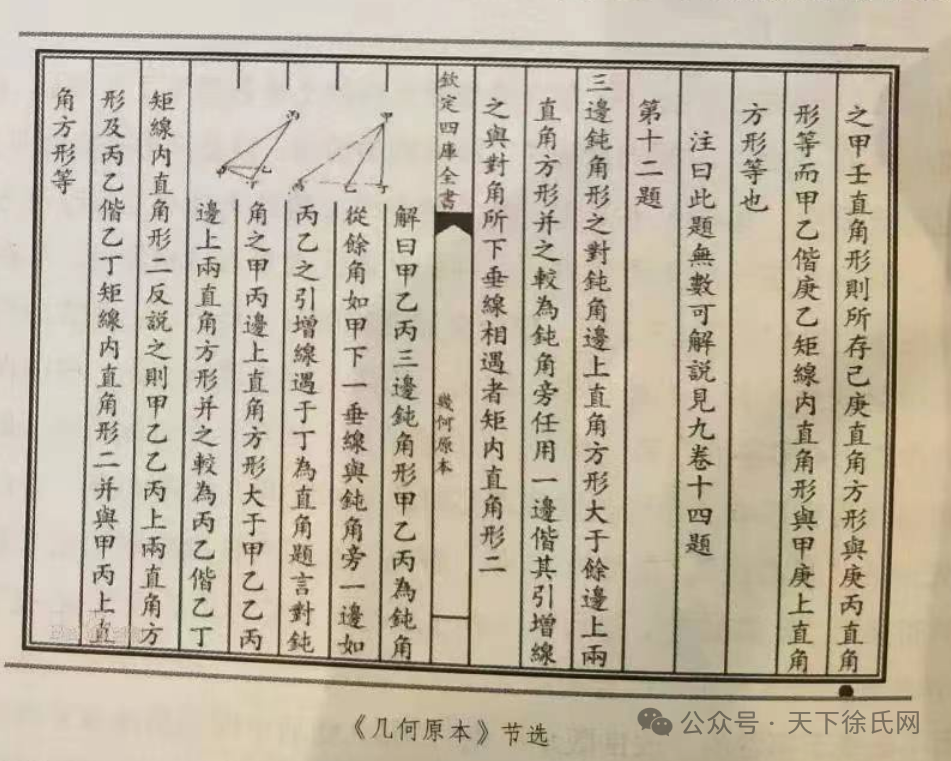 之甲壬直角形則所存己庚直角方形與庚丙直角
形等而甲乙偕庚乙矩線内直角形與甲庚上直角
方形等也
注曰此題無數可解說見九卷十四題
第十二題
三邊鈍角形之對鈍角邊上直角方形大于餘邊上兩
直角方形并之較為鈍角旁任用一邊偕其引增線
之與對角所下垂線相遇者矩内直角形二
欽定四庫全書
幾何原本
解曰甲乙丙三邊鈍角形甲乙丙為鈍角
從餘角如甲下一垂線與鈍角旁一邊如
丙乙之引增線遇于丁為直角題言對鈍
角之甲丙邊上直角方形大于甲乙乙丙
邊上兩直角方形并之較為丙乙偕乙丁
矩線内直角形二反說之則甲乙乙丙上兩直角方
形及丙乙偕乙丁矩線内直角形二并與甲丙上直
角方形等
《几何原本》节选
公众号·天下徐氏网